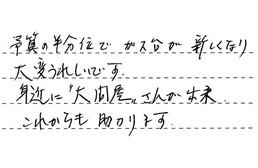 予算の半分位で ガス台が 新しくなり
大変うれしいです.
身近に"大問屋"さんが出来
これからも 助かります.